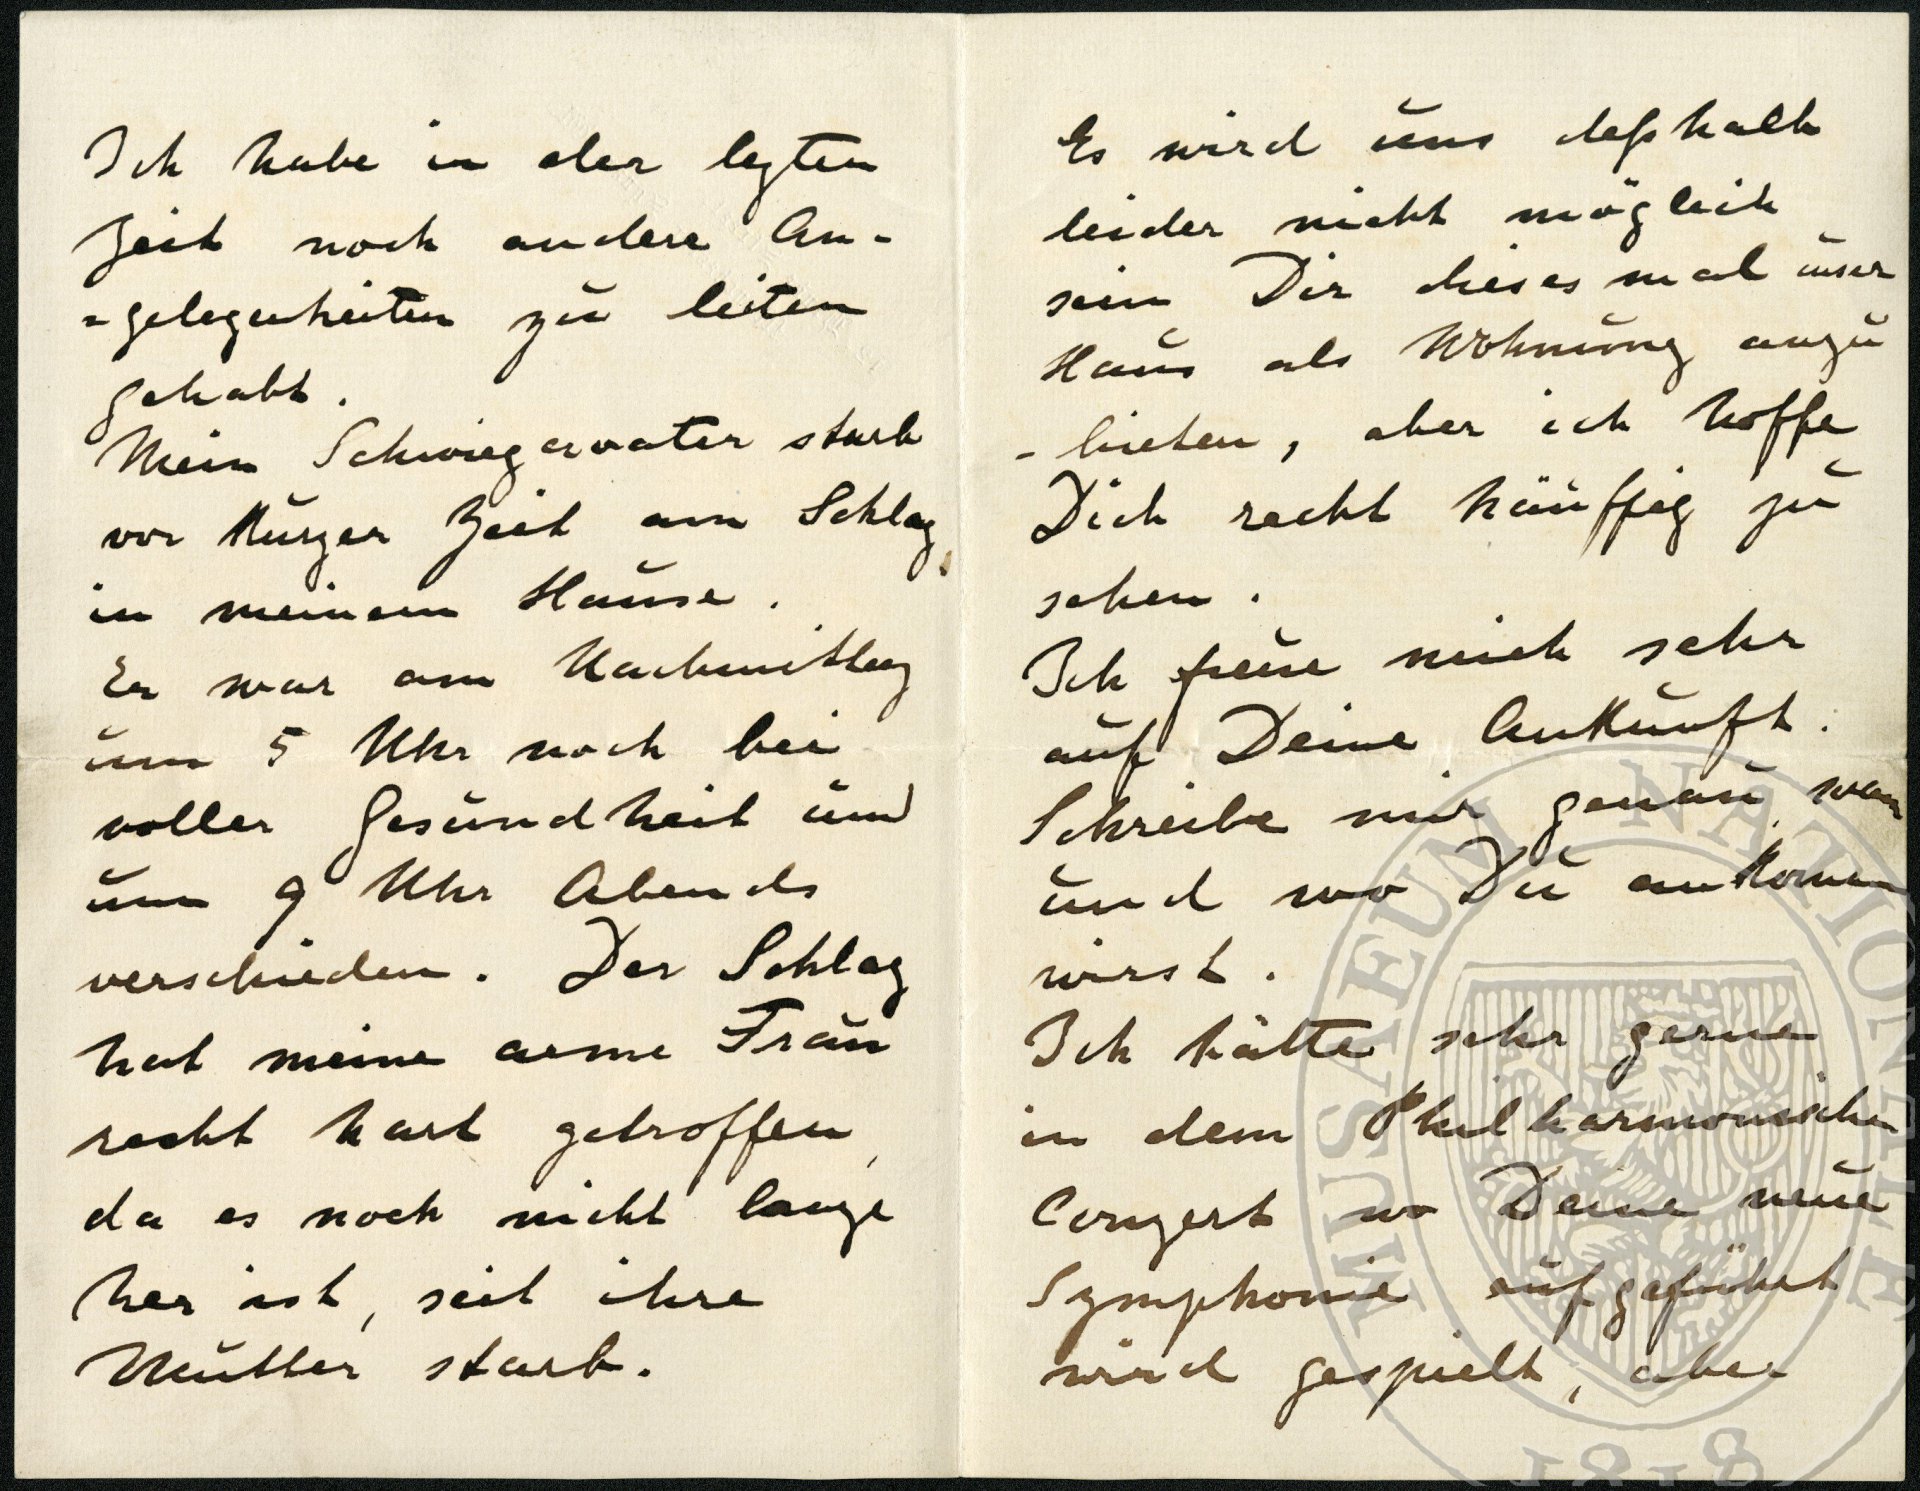 Ich habe in der letzten
Zeit noch andere An-
=gelegenheiten zu leiten
gehabt.
Mein Schwiegervater starb
vor Kurzer Zeit am Schlag,
in meinem Hause.
Er war am Nachmittag
um 5 Uhr noch bei
voller Gesundheit und
um 9 Uhr Abends
verschieden. Der Schlag
hat meine arme Frau
recht hart getroffen,
da es noch nicht lange
her ist, seit ihre
Mutter starb.
Es wird uns deßhalb
leider nicht möglich
sein Dir dieses mal unser
Haus als Wohnung anzu
-bieten, aber ich hoffe
Dich recht häuffig zu
sehen.
Ich freue mich sehr
auf Deine Ankunft.
Schreibe mir genau, wan
und wo Du ankomen
wirst.
Ich hätte sehr gerne
in dem Philharmonischen
Conzert wo Deine neue
Symphonie aufgeführt
wird gespielt, aber
MUSAEUM NATIONALE
1818